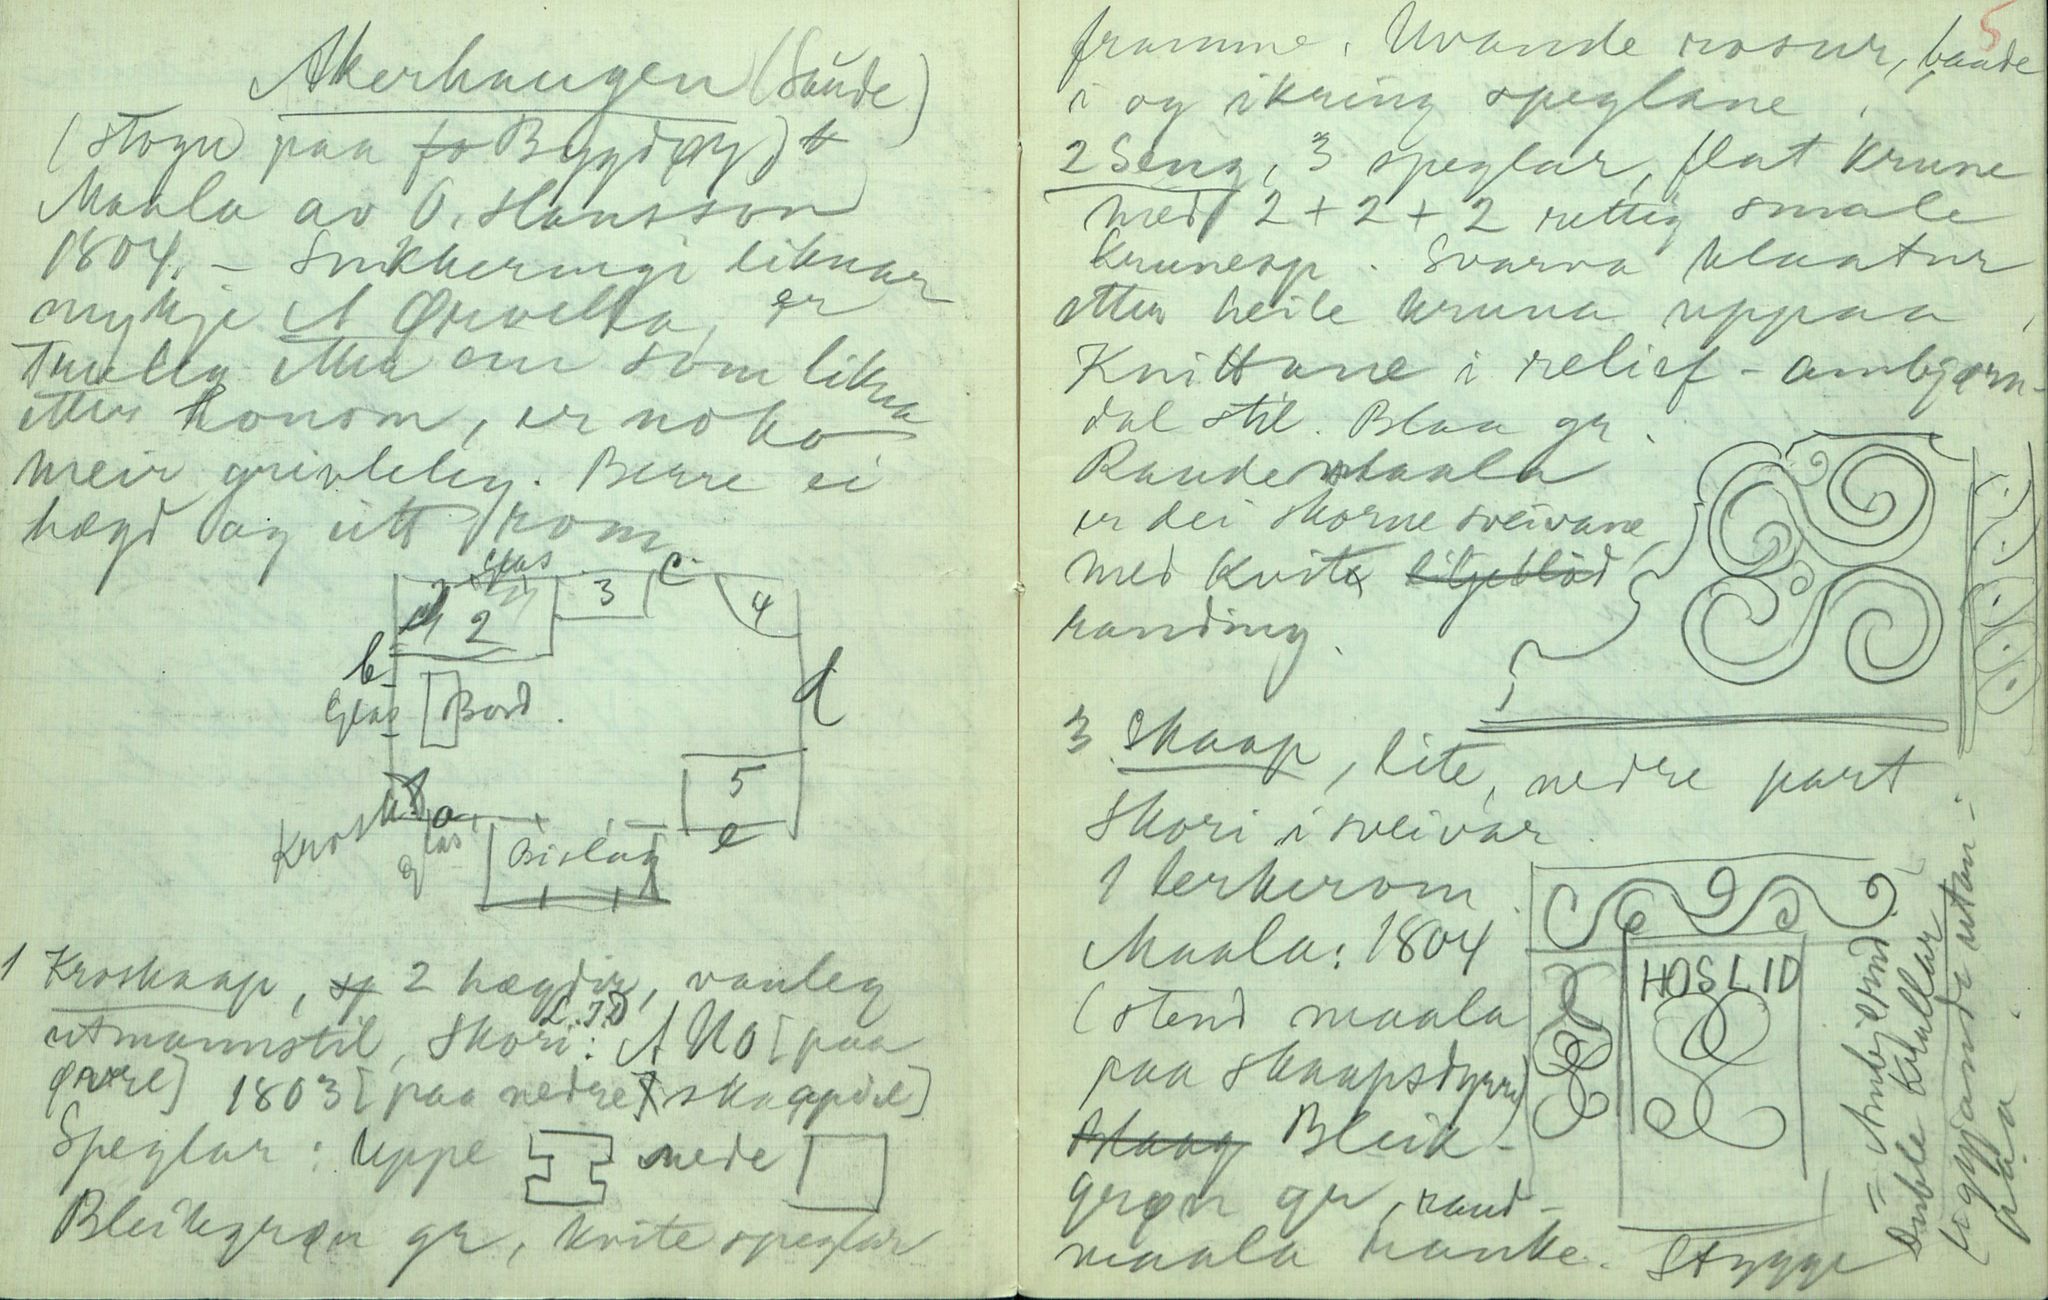 Akerhaugen (Saude)
(stogu paa fo Bygdøy)
Maala av O. Hansson
1804. – Snikkeringi liknar
mykje A Ørvella, er
truleg etter ein som likna
etter honom, er noko
meir grivleleg. Berre ei
hægd og eitt rom
glas
1 2 3 c. 4
b
Glas Bord. d
5
Krosk. a
glas Bislag e
1 Kroskaap, sp 2 hægdir, vanleg
utmannstil, skori: L.I.D A No [paa
øvre] 1803 [paa nedre skaapdel]
Speglar: uppe nede
Bleikgrøn gr, kvite speglar
5
framme. Uvande rosur, baade
i og ikring speglane.
2 Seng, 3 speglar, flat krune
med 2 + 2 + 2 rettig smale
krunesp. Svarva klaatur
etter heile kruna uppaa.
Knittane i relief – ambjørn-
dal stil. Blaa gr.
Raudemaala
er dei skorne sveivane
med kvit liljeblöd
randing.
3 Skaap, lite, nedre part
skori i sveivar.
1 berkerom.
Maala: 1804
(stend maala
paa skaapsdyrri)
Blaag Bleik-
grøn gr, raud-
maala kanke. Stygge
HOSLID
= Ambjørnd.
Duble krullar
(liggjande utan-
paa.